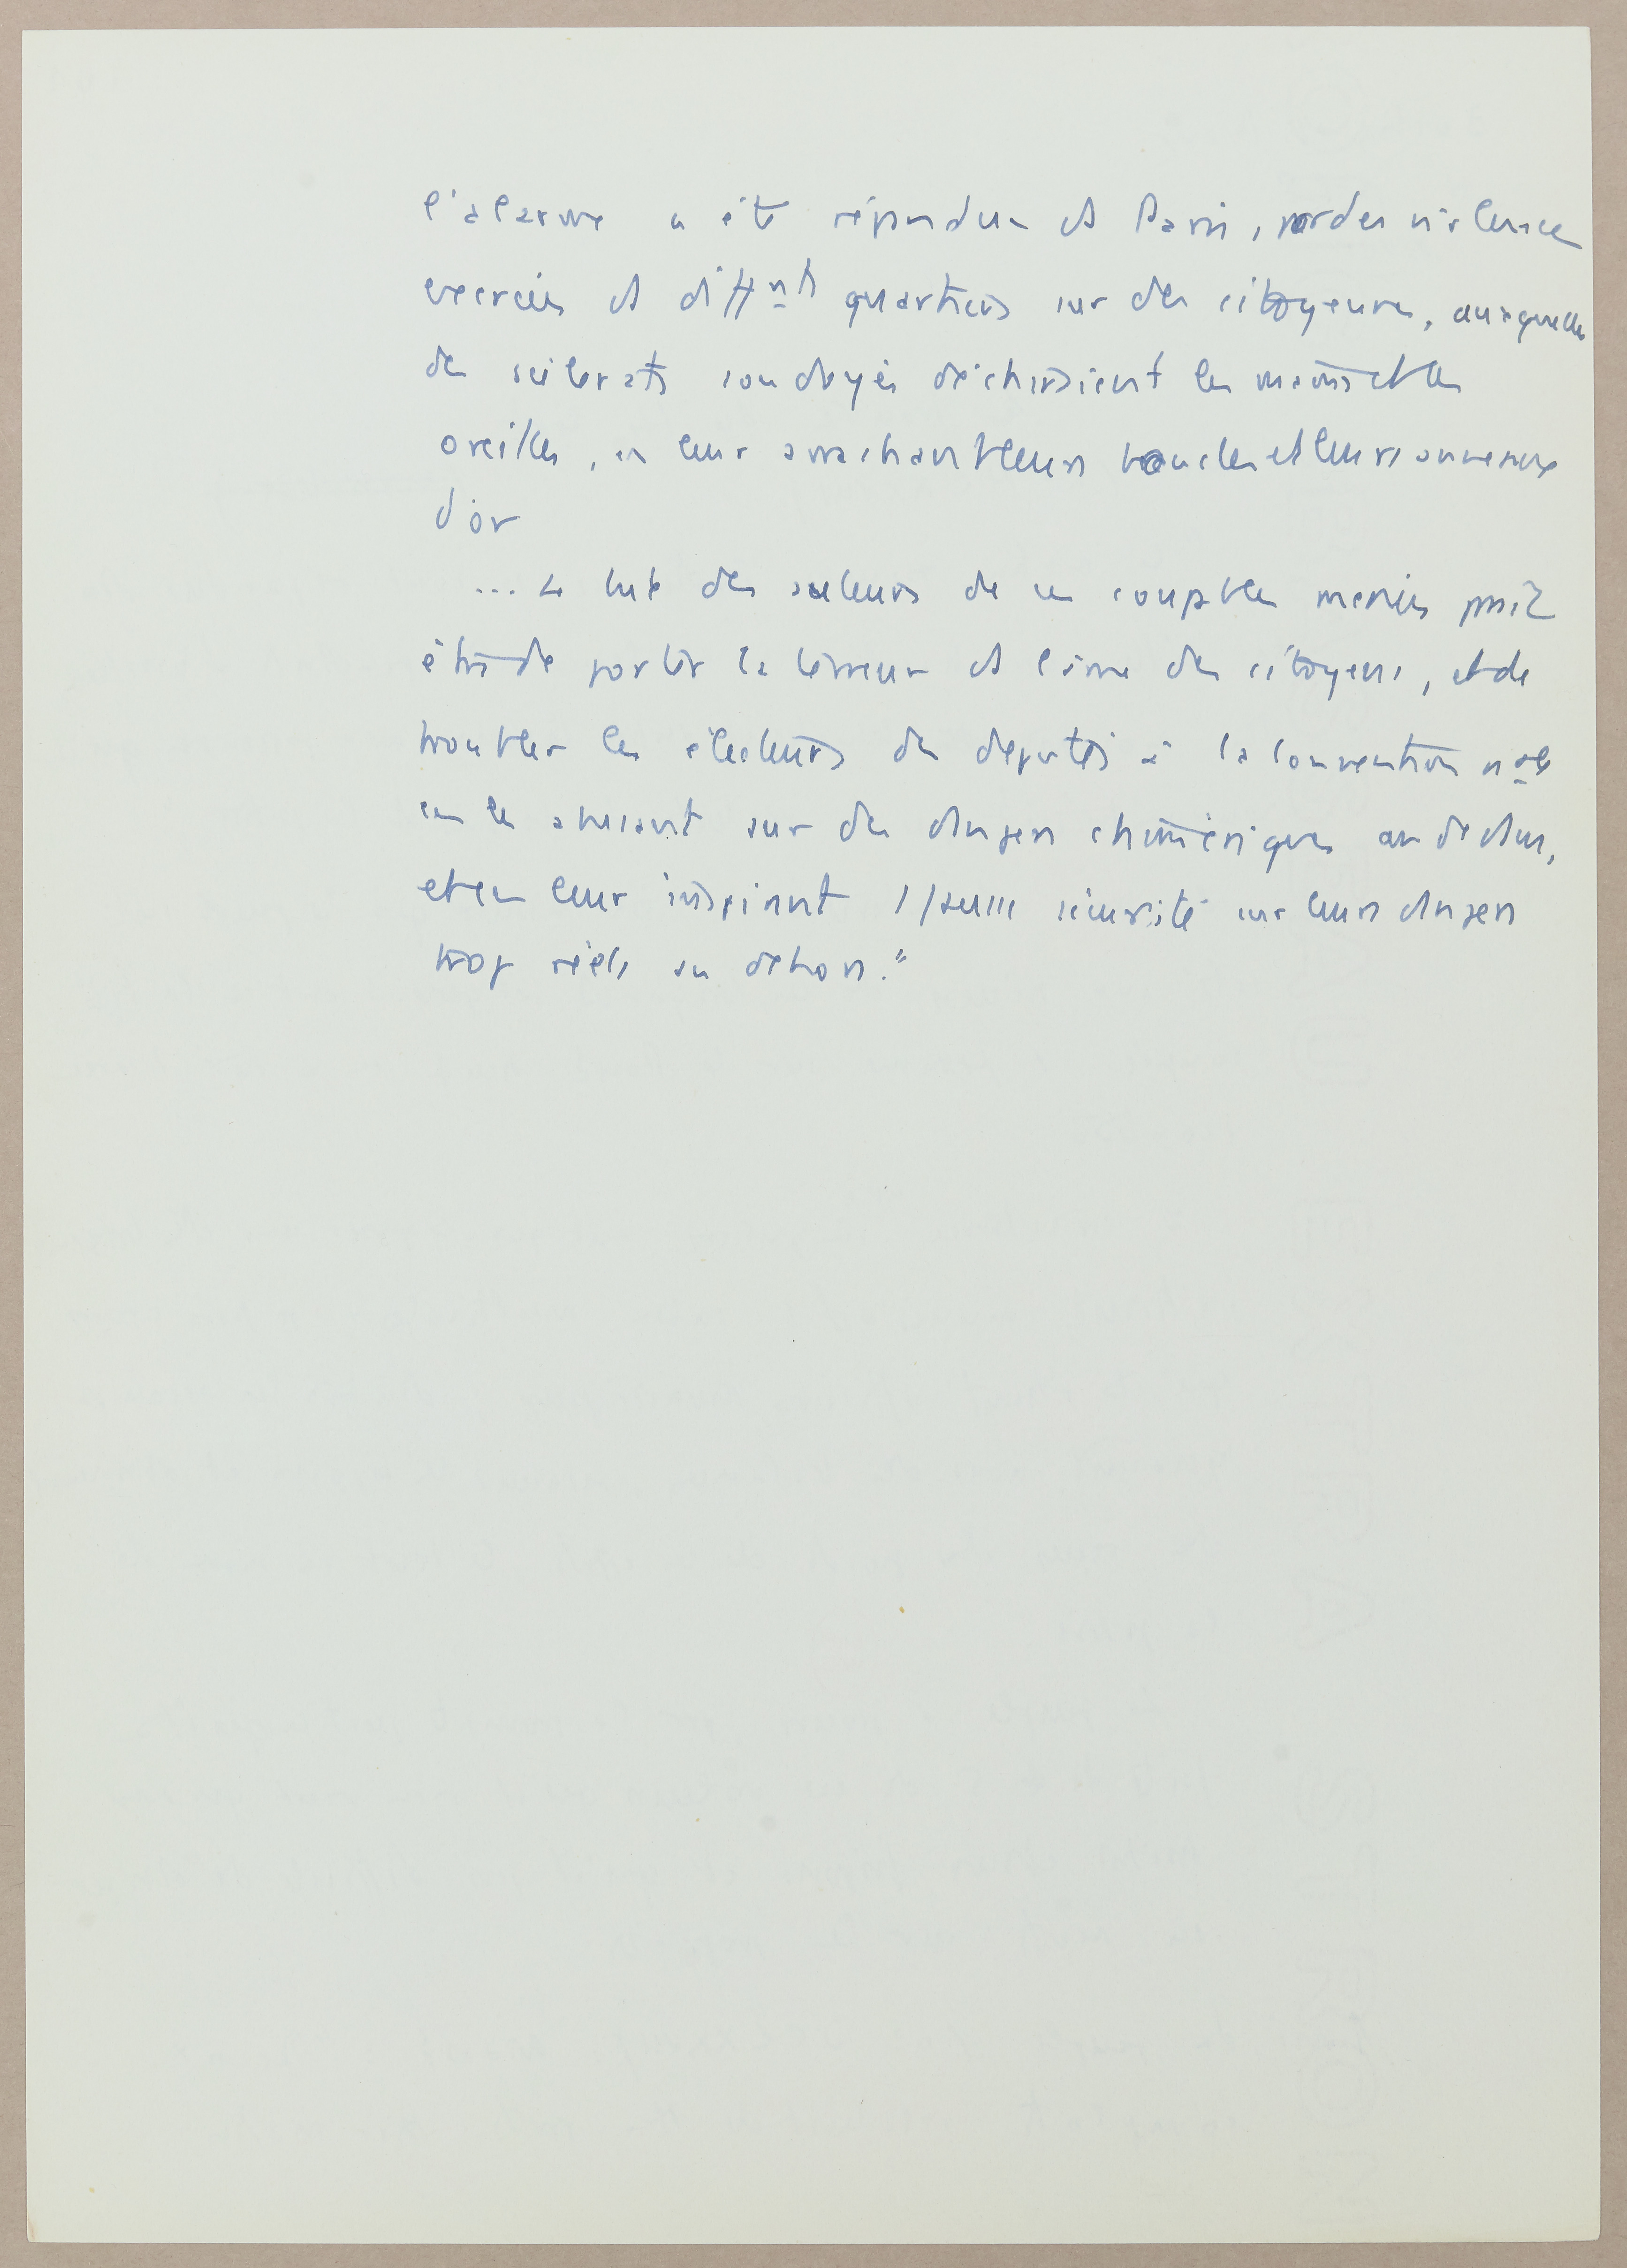 l'alarme a été répandue ds Paris, par des violences
exercées ds diff^nts quartiers sur des citoyennes, auxquelles
des scélérats soudoyés déchiraient les mains et les
oreilles, en leur arrachant leurs boucles et leurs anneaux
d'or
... Le but des auteurs de ces coupables menées paraît
être de porter la terreur ds l'âme des citoyens, et de
troubler les électeurs des députés à la Convention n^ale
en les abusant sur des dangers chimériques au dedans,
et en leur inspirant sécurité sur leurs dangers
trop réels au dehors."